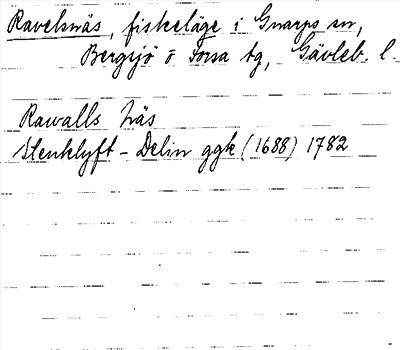 Ravelsnäs, fiskeläge i Gnarps sn,
Bergsjö o Forsa tg, Gävleb. l.
Rawalls Näs
Stenklyft - Delin ggk (1688) 1782